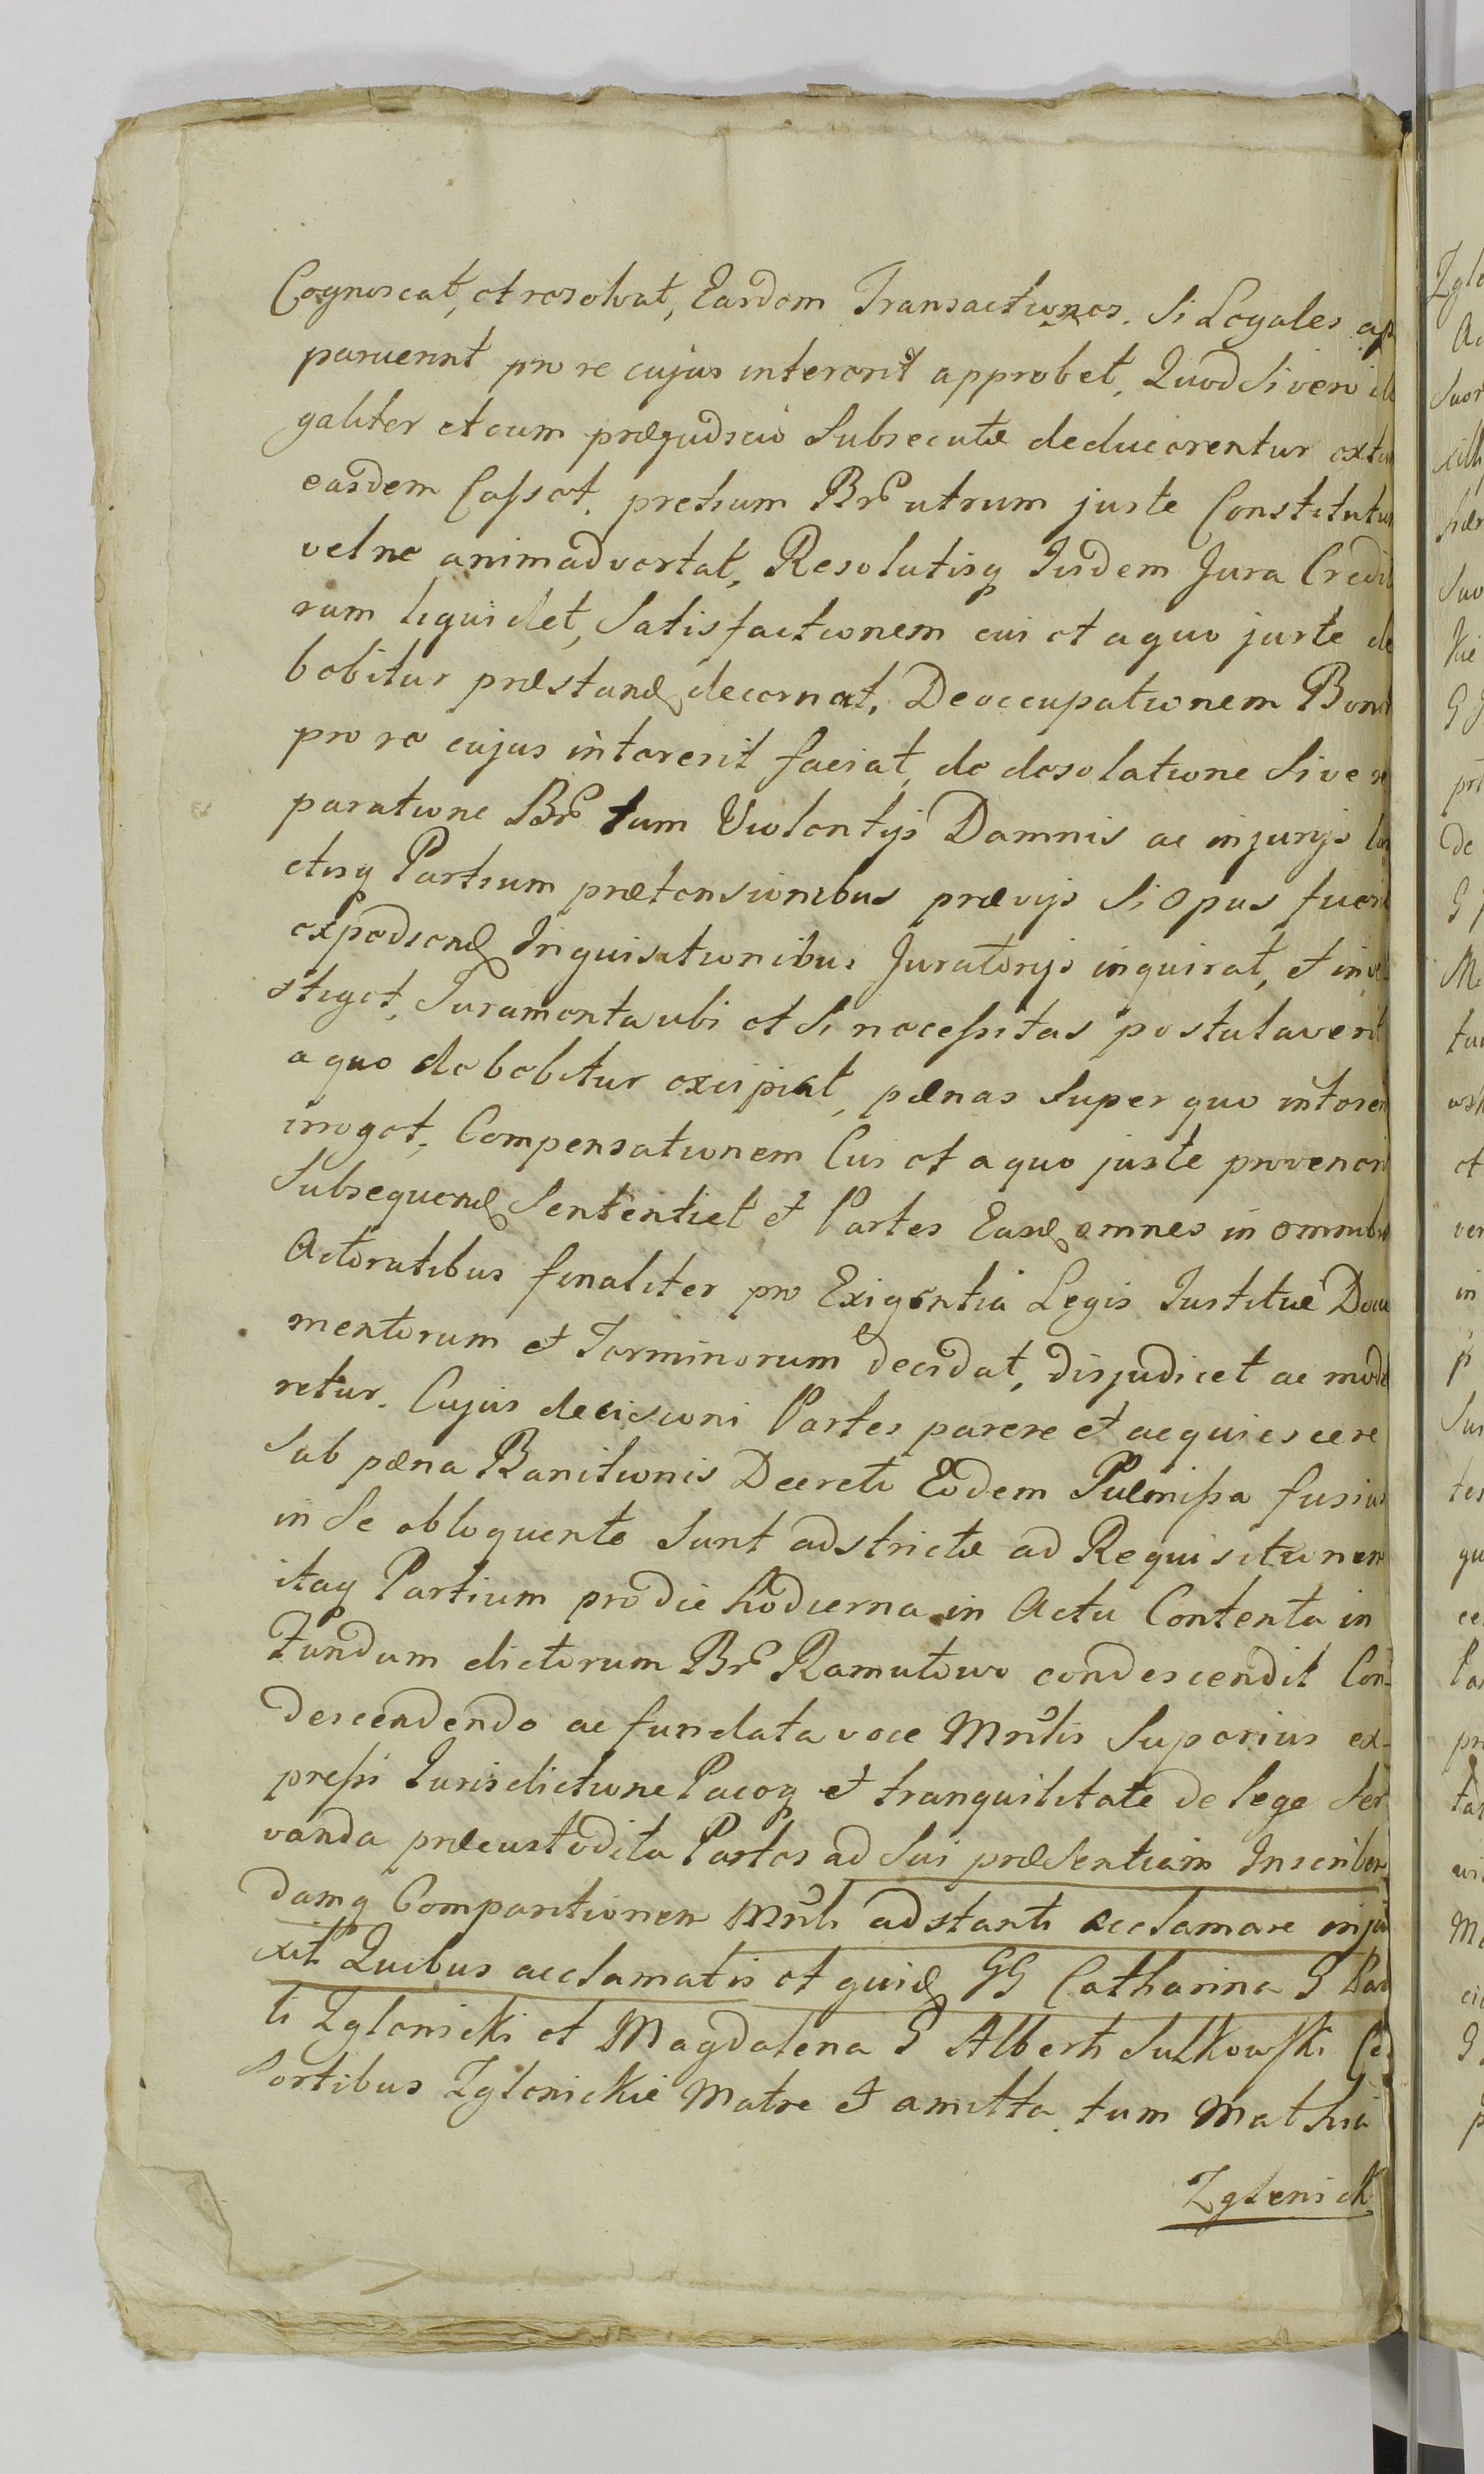 Cognoscat, et resolvat, Easdem Transactiones. Si Legales ap
paruerint pro re cujus intererit approbet, Quod Si vero ille
galiter et cum præjudicio Subsecutæ deducerentur extunc
easdem Casset. pretium Br utrum juste Constitutum
vel ne animadvertat, Resolutisq Iisdem Jura Credito
rum liquidet, Satisfactionem cui et a quo juste de
bebitur præstand decernat. Deoccupationem Bonor
pro re cujus intererit faciat, de desolatione Sive re
paratione Br tum Violentijs Damnis ac injurijs
ctisq Partium prætensionibus prævijs Si Opus fuerit
expediend Inquisitionibus Juratorijs inquirat, et inve-
stiget, Juramenta ubi et Si necessitas postulaverit
a quo debebitur excipiat, pænas Super quo interer
irroget, Compensationem Cui et a quo juste provener
Subsequend Sententiet et Partes Easd omnes in omnibus
Actoratibus finaliter pro Exigentia Legis Iustitiæ Docu
mentorum et Terminorum decidat, disjudicet ac mode
retur. Cujus decisioni Partes parere et acquiescere
Sub pæna Banitionis Decreto Eodem Præmissa fusius
in Se obloquente Sunt adstrictæ ad Requisitionem
itaq Partium pro die hodierna in Actu Contenta in
Fundum dictorum Br Ramutowo condescendit Con-
descendendo ac fundata voce Mrlis Superius ex-
pressi Iurisdictione Paceq et tranquilitate de lege Ser
vanda præcustodita Partes ad Sui præsentiam Inscriben
damq Comparitionem Mrli adstanti acclamare injun
xit Quibus acclamatis et quid GG Catharina G Pau
li Zglenicki et Magdalena G Alberti Sulkowski Con
Sortibus Zglenickie Matre et amitta tum Mathia
Zglenick